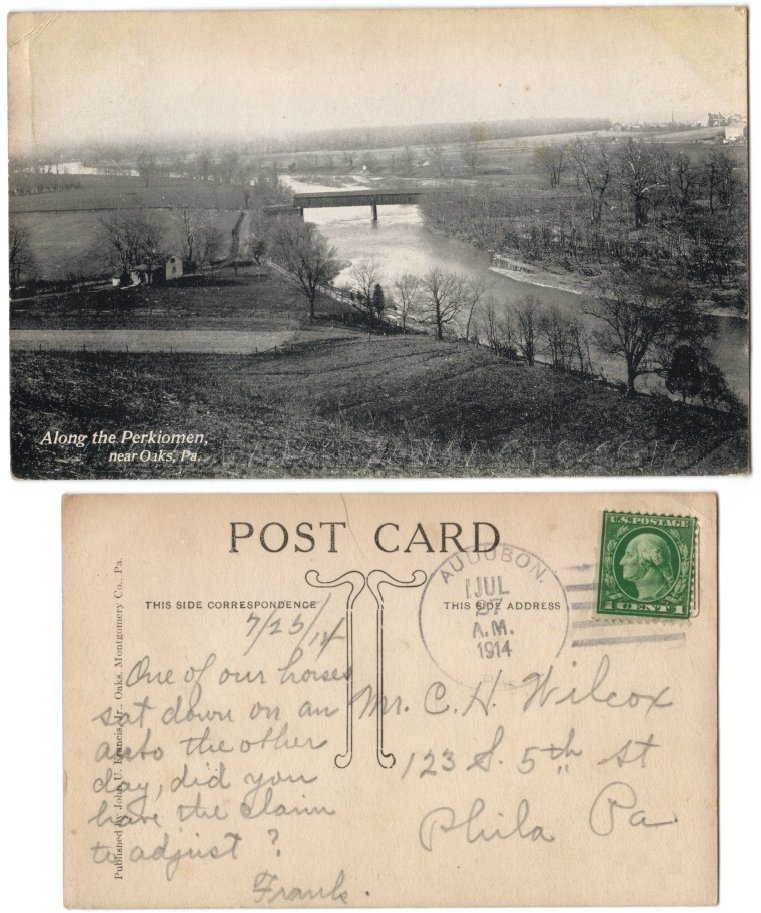 Along the Perkiomen,
near Oaks, Pa.
POST CARD
THIS SIDE CORRESPONDENCE
THIS SIDE ADDRESS
U.S. POSTAGE
1 CENT 1
AUDUBON.
JUL
27
A.M.
1914
Published by John U. Francis, Jr., Oaks, Montgomery Co., Pa.
7/25/14
One of our horses
sat down on an
auto the other
day, did you
have the claim
to adjust?
Frank.
Mr. C. H. Wilcox
123 S. 5th St
Phila Pa.